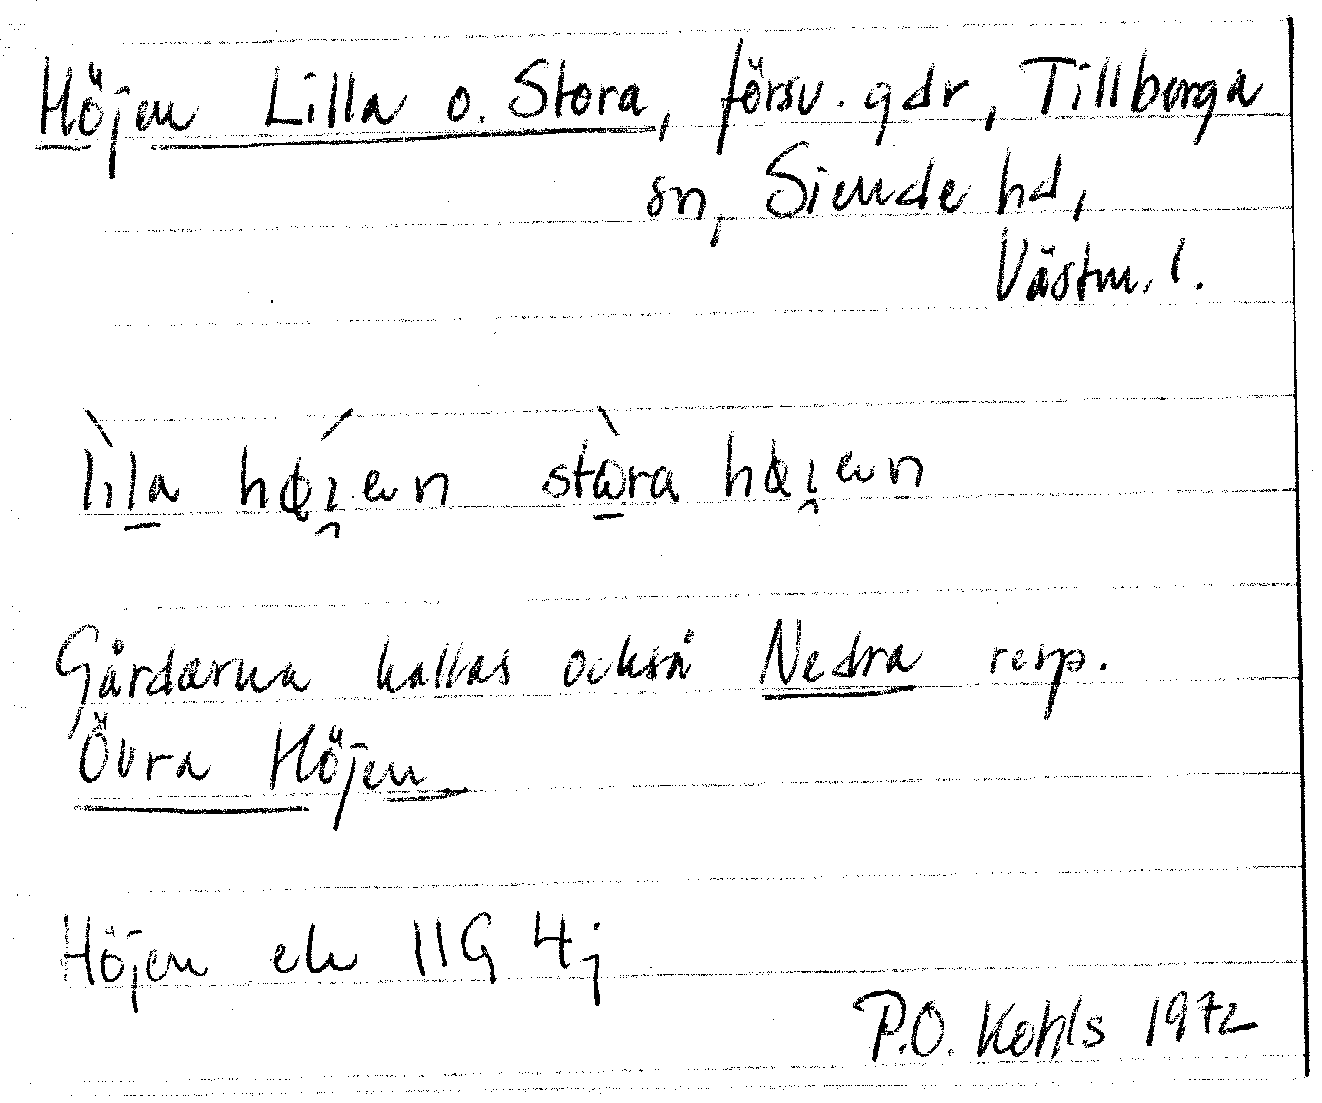 Höjen Lilla o. Stora, försv. gdr, Tillberga
sn, Siende hd,
Västm. l.
lìla høi̯en stòra høi̯en
Gårdarna kallas också Nedra resp.
Övra Höjen
Höjen ek 11G 4j
P.O. Kohls 1972